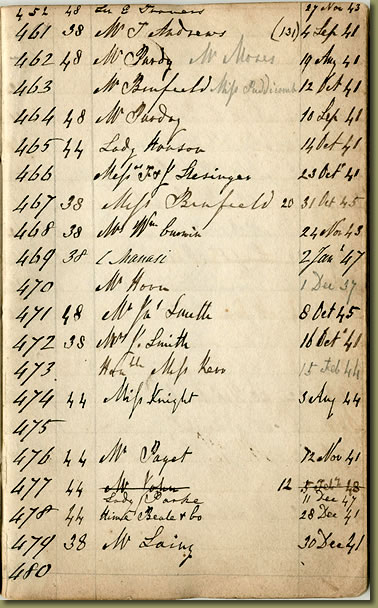 452 48 27 Nov 43
461 38 Mr T Andrews (131) 4 Sep 41
462 48 Mr Purdy Mr Moses 19 Aug 41
463 Mr Benfield Miss Puddicomb 12 Oct 41
464 48 Mr Purday 10 Sep 41
465 44 Lady 14 Oct 41
466 Messrs T & J 23 Octr 41
467 38 Miss Benfield 20 31 Oct 45
468 38 Mr Wm 24 Nov 43
469 38 C Manass 2 Jany 47
470 Mr Horn 1 Dec 37
471 48 Mr Jas Smith 8 Oct 45
472 38 Mrs J. Smith 16 Octr 41
473 Honble Miss Kerr 15 Feb 44
474 44 Miss Knight 3 Aug 44
475
476 44 Mr Paget 12 Nov 41
477 44 Mr 12 5 48
Lady Parke 11 Dec 47
478 44 Beale & Co 28 Dec 41
479 38 Mr Laing 30 Dec 41
480